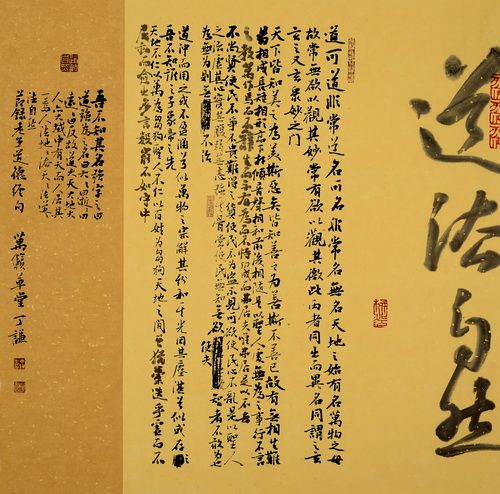 道法自然
道可道非常道名可名非常名無名天地之始有名萬物之母
故常無欲以觀其妙常有欲以觀其徼此兩者同出而異名同謂之玄
玄之又玄衆妙之門
天下皆知美之為美斯惡矣皆知善之為善斯不善已故有無相生難
易相成長短相形高下相傾音聲相和前後相隨是以聖人處無為之事行不言
之教萬物作焉而不辭生而不有為而不恃功成而弗居夫唯弗居是以不去
不尚賢使民不爭不貴難得之貨使民不為盜不見可欲使民心不亂是以聖人
之治虛其心實其腹弱其志強其骨常使民無知無欲使夫智者不敢為也
為無為則無不治
道沖而用之或不盈淵兮似萬物之宗解其紛和其光同其塵湛兮似或存
吾不知誰之子象帝之先
天地不仁以萬物為芻狗聖人不仁以百姓為芻狗天地之間其猶橐籥乎虛而不
屈動而愈出多言數窮不如守中
吾不知其名強字之曰
道強為之名曰大大曰逝逝曰
遠遠曰反故道大天大地大
人亦大域中有四大而人居其
一焉人法地地法天天法道道
法自然
節錄老子道德經句
萬籟草堂丁謙